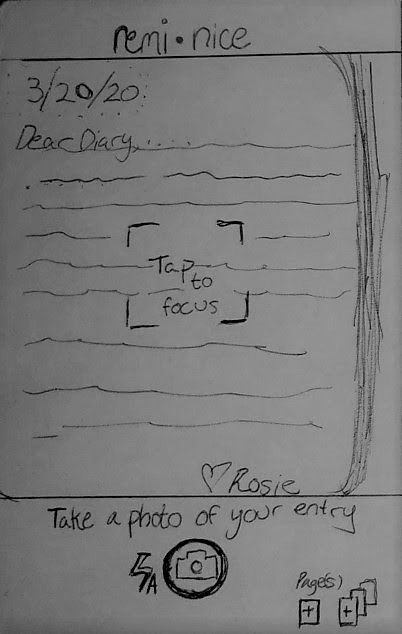 remi•nice
3/20/20
Dear Diary.....
Tap
to
focus
♡Rosie
Take a photo of your entry
A
Page(s)
+ +